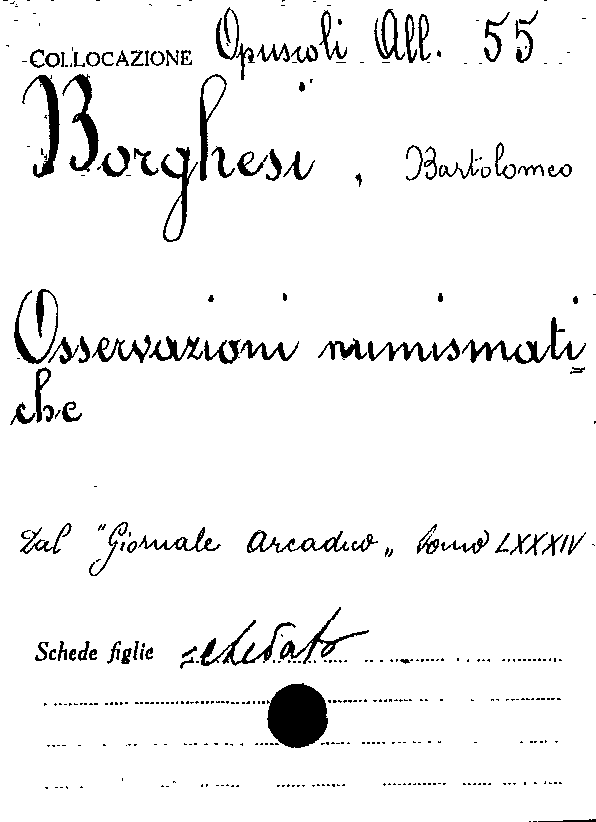 COLLOCAZIONE Opuscoli All. 55
Borghesi, Bartolomeo
Osservazioni numismati=
che
Dal "Giornale Arcadico„ tomo LXXXIV
Schede figlie schedato